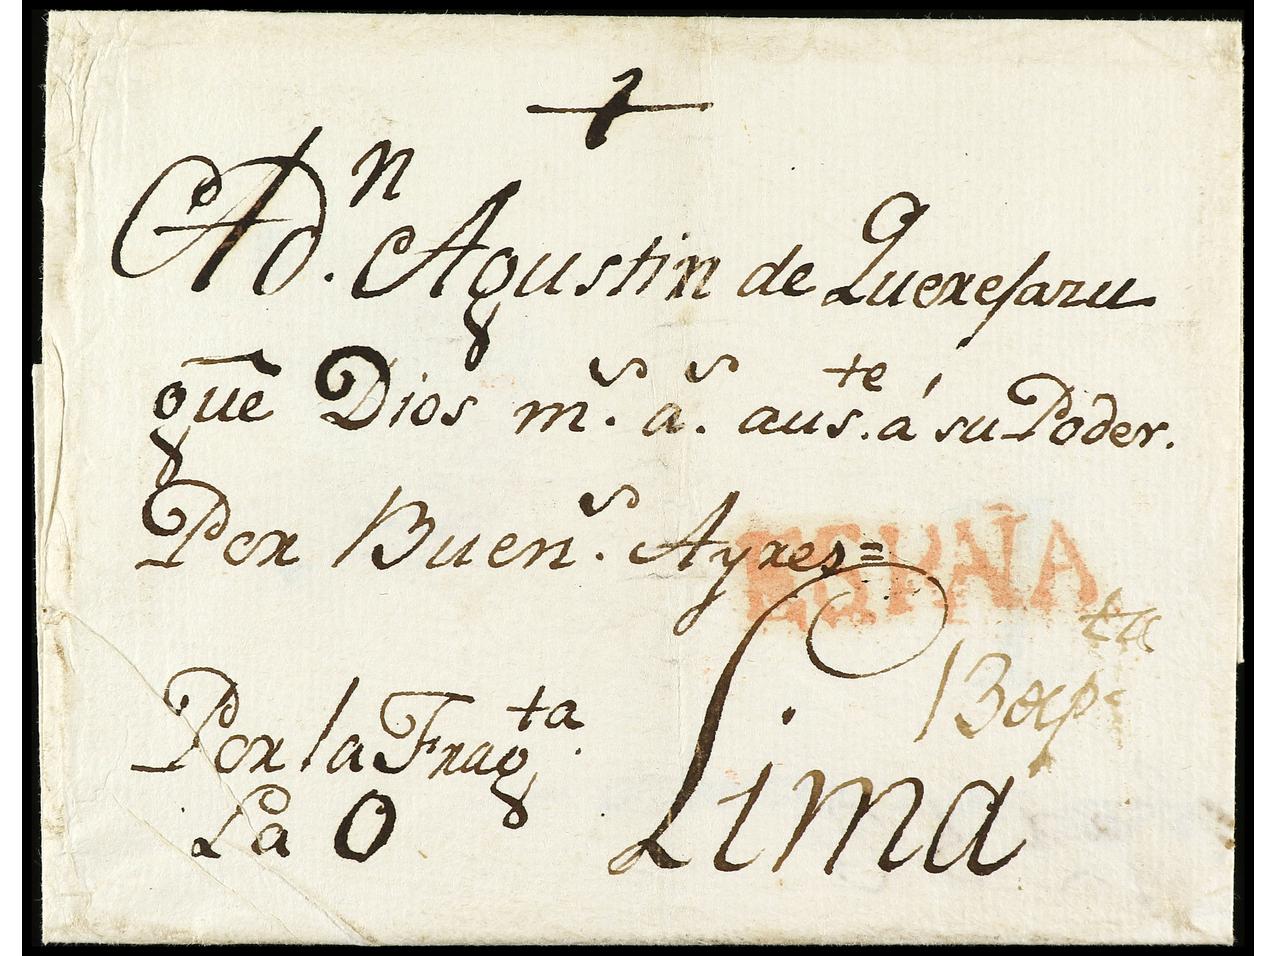 A Dn. Agustin de Querejazu
que Dios ms. as. auste. á su Poder.
Por Buens. Ayres=
ESPAÑA
Lima
Por la Fragta.
La O